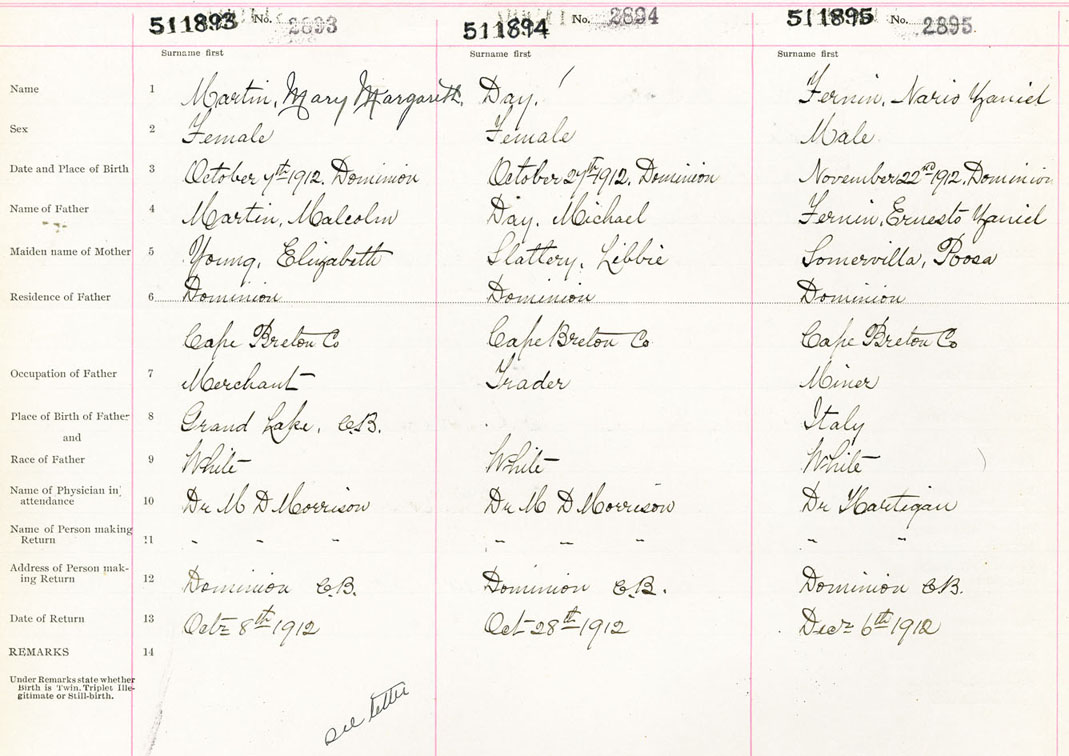 511893 No. 2893 511894 No. 2894 511895 No. 2895
Surname first Surname first Surname first
Name 1 Martin, Mary Margareth, Day. Fernin, Nario Yaniel
Sex 2 Female Female Male
Date and Place of Birth 3 October 7th 1912, Dominion October 27th 1912, Dominion November 22nd 1912, Dominion
Name of Father 4 Martin, Malcolm Day, Michael Fernin, Ernesto Yaniel
Maiden name of Mother 5 Young, Elizabeth Slattery, Libbie Somervilla, Poosa
Residence of Father 6 Dominion Dominion Dominion
Cape Breton Co Cape Breton Co Cape Breton Co
Occupation of Father 7 Merchant Trader Miner
Place of Birth of Father 8 Grand Lake, C.B. Italy
and
Race of Father 9 White White White
Name of Physician in
attendance 10 Dr M D Morrison Dr M D Morrison Dr Hartigan
Name of Person making
Return 11 " " " " " " " "
Address of Person mak-
ing Return 12 Dominion C.B. Dominion C.B. Dominion CB.
Date of Return 13 Oct 8th 1912 Oct 28th 1912 Decr 6th 1912
REMARKS 14
Under Remarks state whether
Birth is Twin, Triplet Ille-
gitimate or Still-birth.
see letter